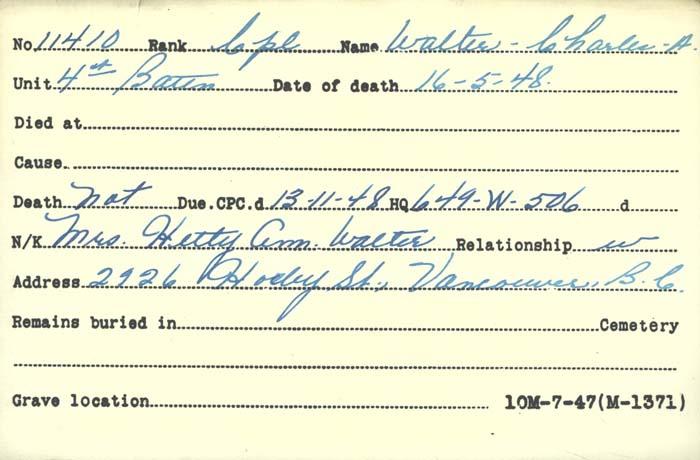 No. 11410 Rank Cpl Name Walter - Charles - A.
Unit 4th Batten Date of death 16-5-48.
Died at
Cause
Death not Due. CPC.d 13-11-48 HQ 649-W-506 d
N/K Mrs. Hetty Ann. Walter Relationship w
Address 2926 St., Vancouver, B.C.
Remains buried in Cemetery
Grave location 10M-7-47(M-1371)